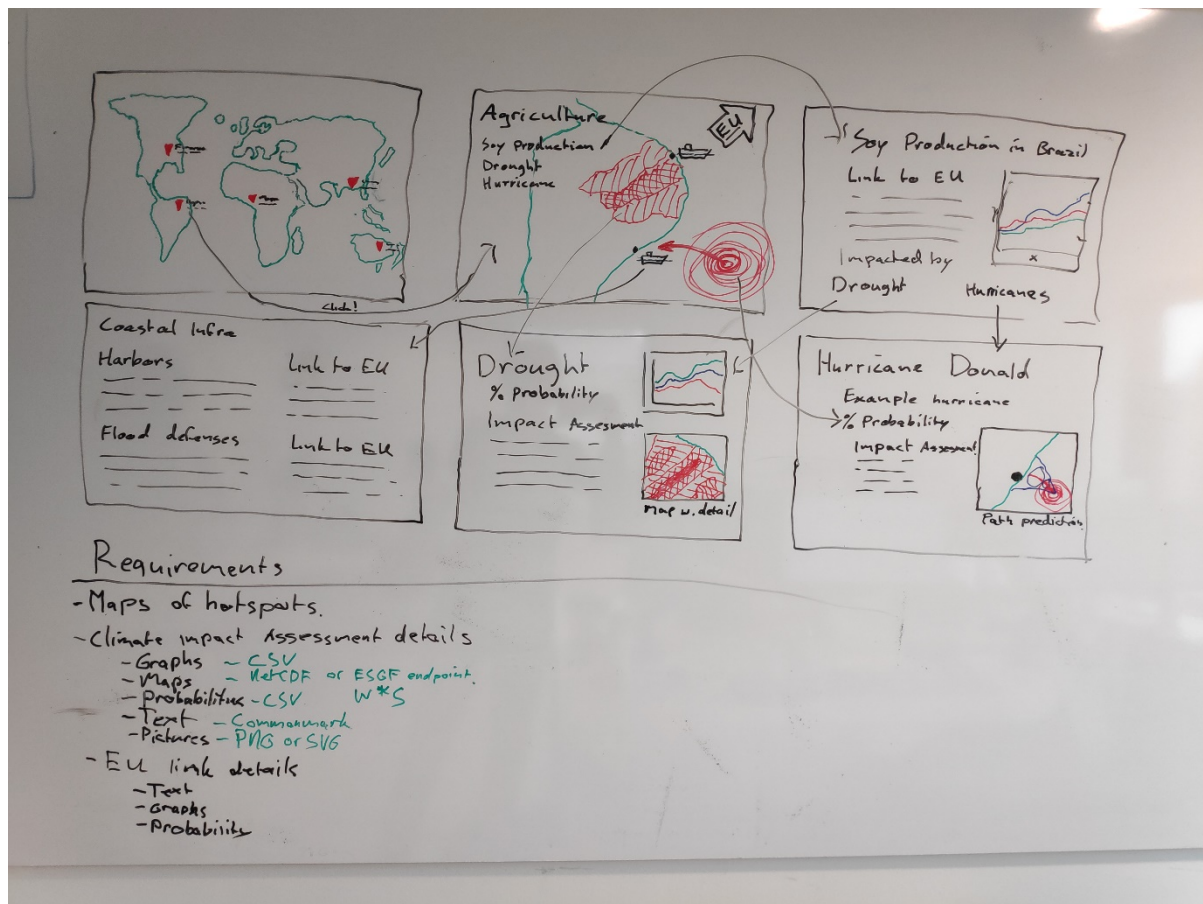 Click!
Agriculture
Soy Production
Drought
Hurricane
EU
Soy Production in Brazil
Link to EU
Impacted by
Drought
Hurricanes
x
Coastal Infra
Harbors
Link to EU
Flood defenses
Link to EU
Drought
% Probability
Impact Assesment
Map w. detail
Hurricane Donald
Example hurricane
% Probability
Impact Assessment
Path prediction
Requirements
- Maps of hotspots.
- Climate impact Assessment details
- Graphs - CSV
- Maps - NetCDF or ESGF endpoint.
- Probabilities - CSV W*S
- Text - Commonmark
- Pictures - PNG or SVG
- EU link details
- Text
- Graphs
- Probability